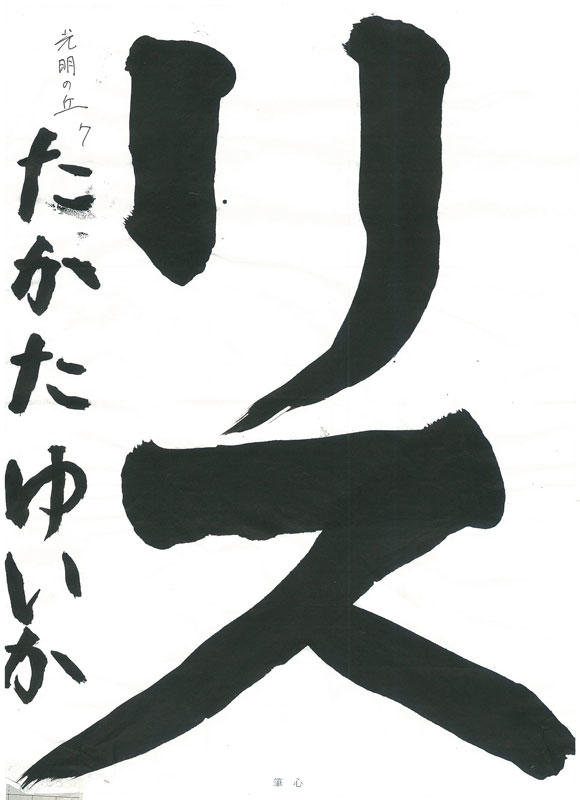 リス
光明の丘 7
たかたゆいか
筆心